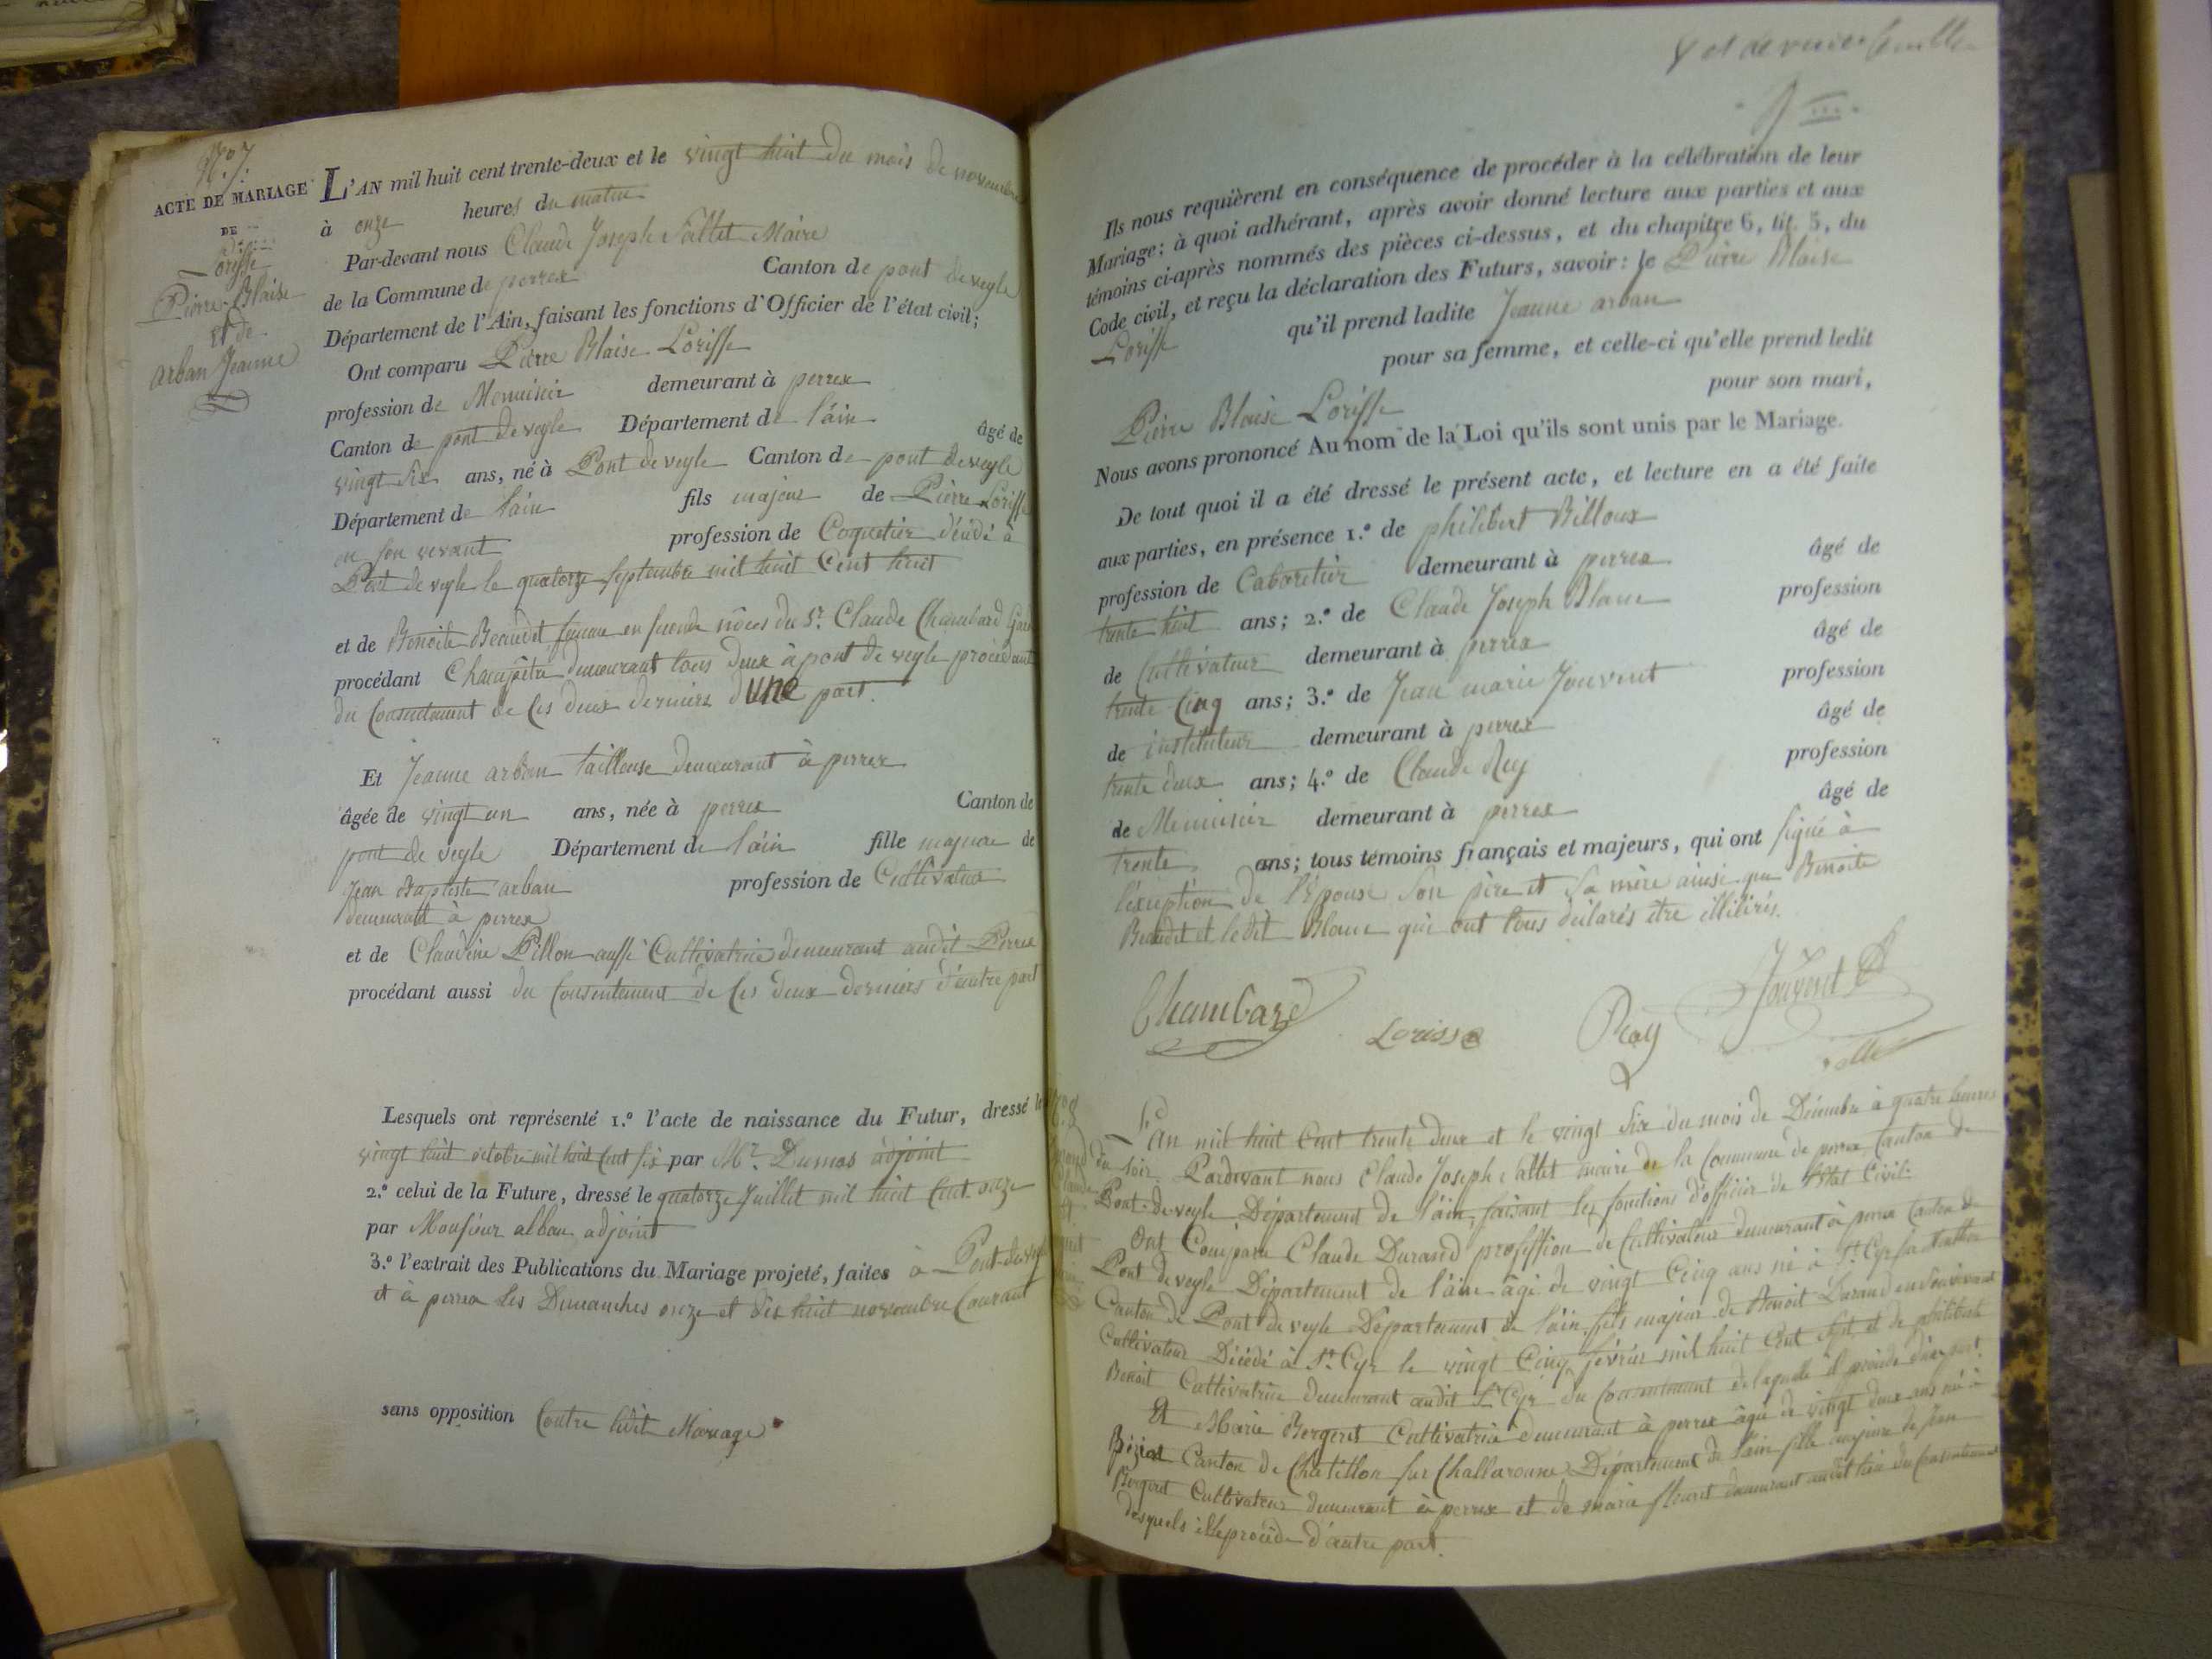 N.o 7.
ACTE DE MARIAGE
DE
Lorisse
Pierre Blaise
et de
arban Jeanne
L'AN mil huit cent trente-deux et le vingt huit du mois de novembre
à onze heures du matin
Par-devant nous Claude Joseph Maire
de la Commune de perrex Canton de pont de veyle
Département de l'Ain, faisant les fonctions d'Officier de l'état civil;
Ont comparu Pierre Blaise Lorisse
profession de Menuisier demeurant à perrex
Canton de pont de veyle Département de l'ain âgé de
vingt six ans, né à Pont de veyle Canton de pont de veyle
Département de l'ain fils majeur de Pierre Lorisse
en son vivant profession de Coquetier décédé à
Pont de veyle le quatorze septembre mil huit Cent huit
et de Benoite Beaudet femme en seconde nôces du Sr. Claude Chambard Garde
procédant Champêtre demeurant tous deux à pont de veyle procédant
du Consentement de Ces deux derniers d'une part.
Et Jeanne arban tailleuse demeurant à perrex
âgée de vingt un ans, née à perrex Canton de
pont de veyle Département de l'ain fille majeure de
Jean Baptiste arban profession de Cultivateur
demeurant à perrex
et de Claudine Pillon aussi Cultivatrice demeurant audit Perrex
procédant aussi du Consentement de Ces deux derniers d'autre part
Lesquels ont représenté 1.o l'acte de naissance du Futur, dressé le
vingt huit octobre mil huit Cent six par Mr. Dumas adjoint
2.o celui de la Future, dressé le quatorze Juillet mil huit Cent onze
par Monsieur alban adjoint
3.o l'extrait des Publications du Mariage projeté, faites à Pont-de-veyle
et à perrex les Dimanches onze et dix huit novembre Courant
sans opposition Contre ledit Mariage
8 et dernier feuillet
Ils nous requièrent en conséquence de procéder à la célébration de leur
Mariage: à quoi adhérant, après avoir donné lecture aux parties et aux
témoins ci-après nommés des pièces ci-dessus, et du chapitre 6, tit. 5, du
Code civil, et reçu la déclaration des Futurs, savoir: le Pierre Blaise
Lorisse qu'il prend ladite Jeanne arban
pour sa femme, et celle-ci qu'elle prend ledit
Pierre Blaise Lorisse pour son mari,
Nous avons prononcé Au nom de la Loi qu'ils sont unis par le Mariage.
De tout quoi il a été dressé le présent acte, et lecture en a été faite
aux parties, en présence 1.o de philibert Billoux
profession de Cabaretier demeurant à perrex âgé de
trente huit ans; 2.o de Claude Joseph Blanc profession
de Cultivateur demeurant à perrex âgé de
trente Cinq ans; 3.o de Jean marie Jouvent profession
de instituteur demeurant à perrex âgé de
trente deux ans; 4.o de Claude Rey profession
de Menuisier demeurant à perrex âgé de
trente ans; tous témoins français et majeurs, qui ont signé à
l'exception de l'Epouse son père et sa mère ainsi que Benoite
Beaudet et ledit Blanc qui ont tous déclarés être illitirés.
Chambard Lorisse Rey Jouvent
L'an mil huit Cent trente deux et le vingt six du mois de Décembre à quatre heures
du soir. Pardevant nous Claude Joseph maire de la Commune de perrex Canton de
Pont-de-veyle Département de l'ain, faisant les fonctions d'officier de l'Etat Civil:
Ont Comparu Claude Durand profession de Cultivateur demeurant à perrex Canton de
Pont de veyle Département de l'ain âgé de vingt Cinq ans né à St. Cyr
Canton de Pont de veyle Département de l'ain fils majeur de Benoit Durand en son vivant
Cultivateur Décédé à St. Cyr le vingt Cinq février mil huit Cent sept et de philiberte
Benoit Cultivatrice demeurant audit St. Cyr du Consentement de laquelle il procède d'une part.
Et Marie Bergeret Cultivatrice demeurant à perrex âgée de vingt deux ans né à
Béziat Canton de Chatillon sur Challaronne Département de l'ain fille majeure de Jean
Bergeret Cultivateur demeurant à perrex et de marie fleuret demeurant audit lieu du Consentement
desquels elle procède d'autre part.